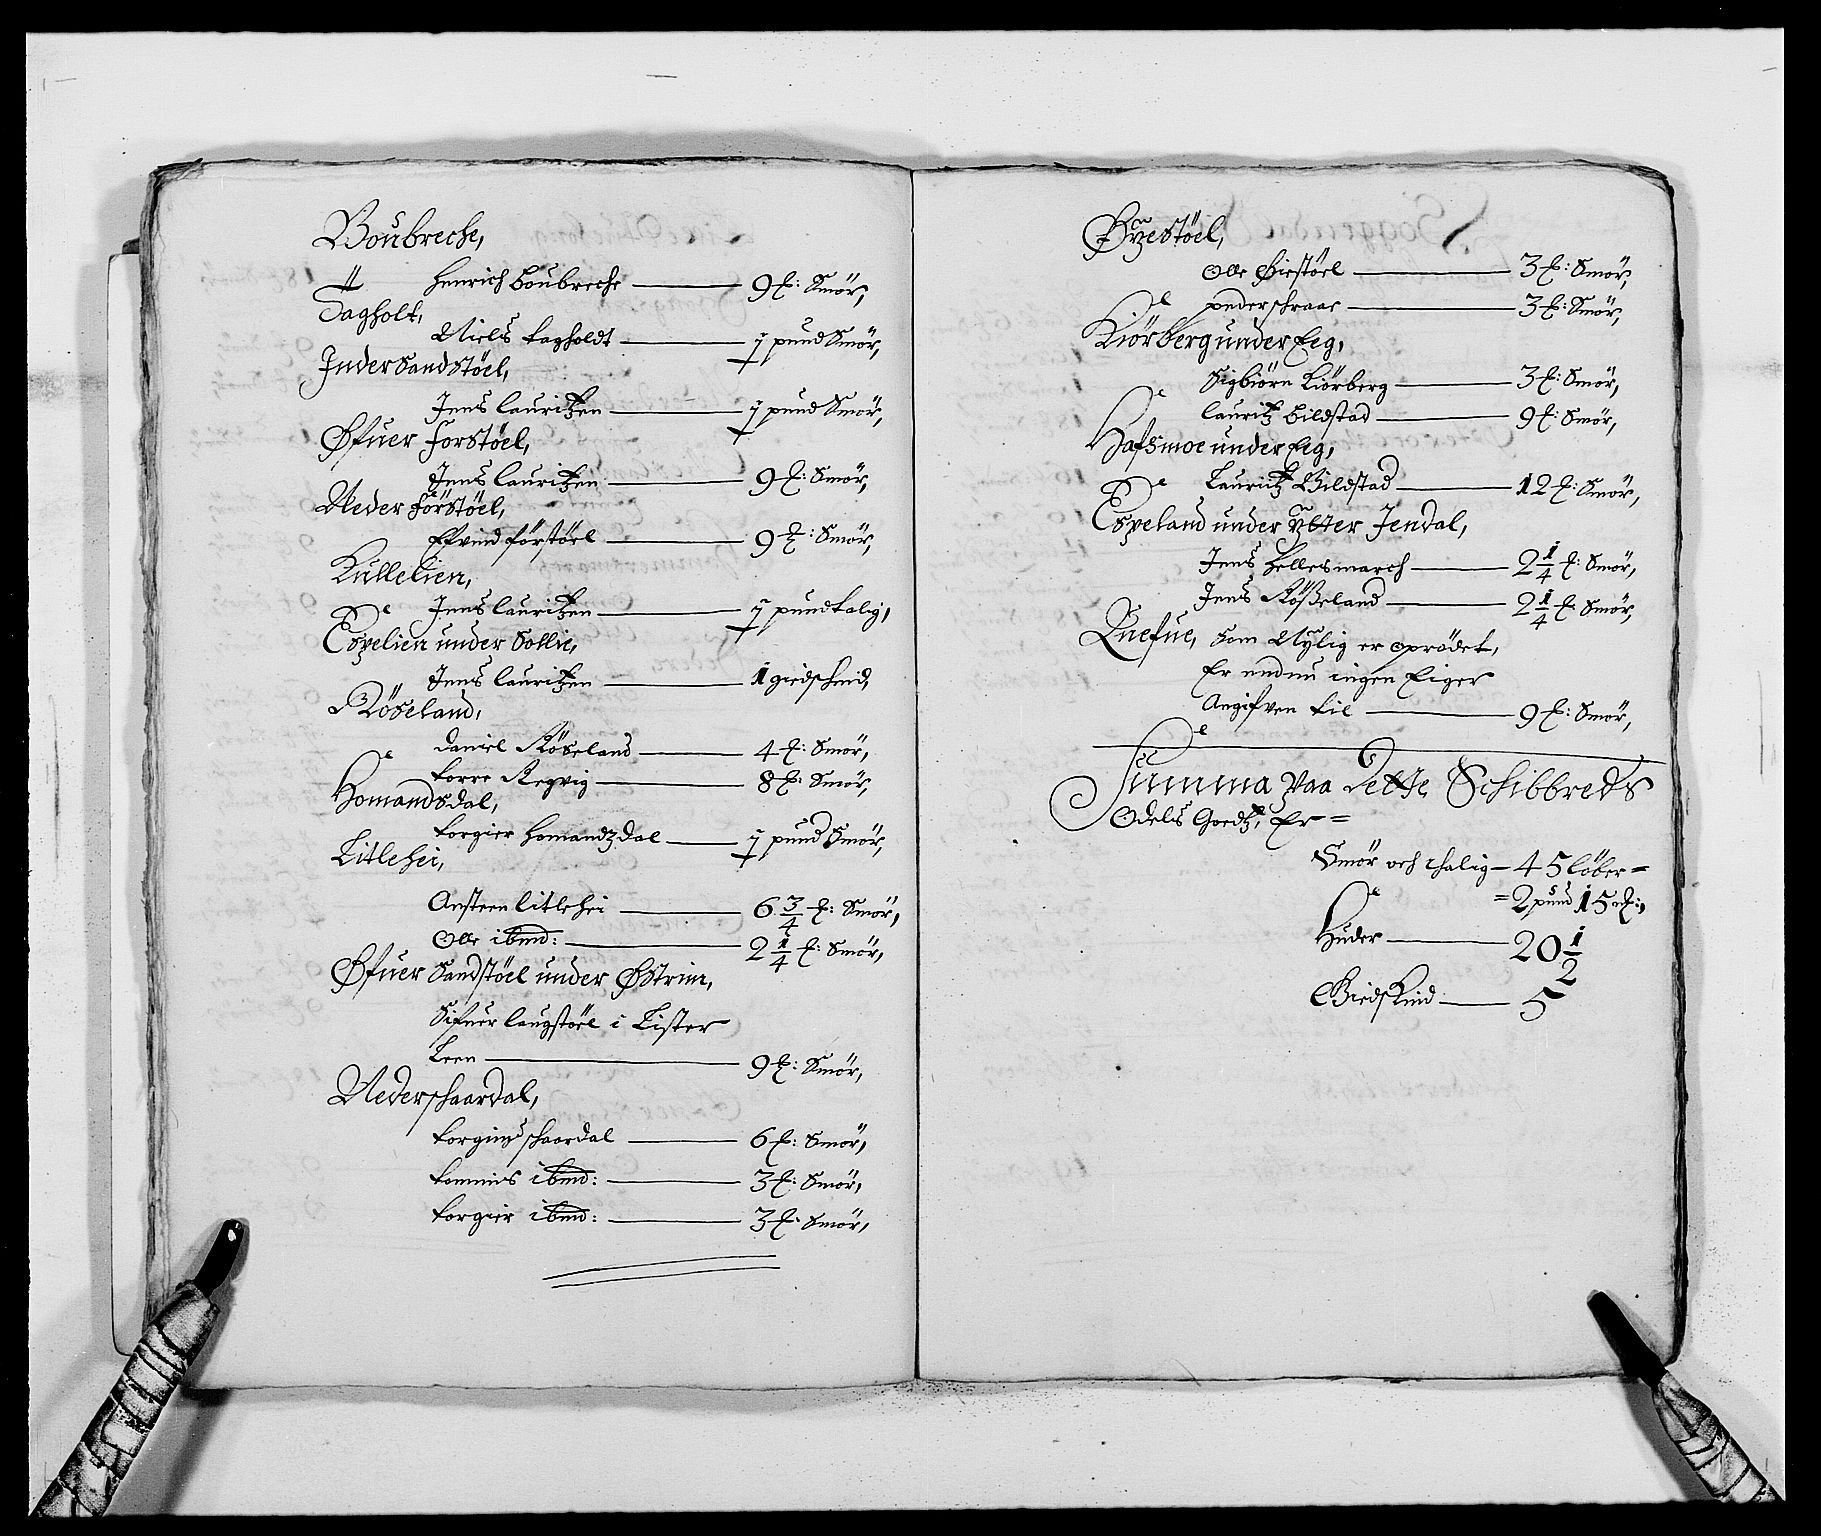 Boubreche,
Henrich Boubreche — 9 ℔: Smör,
Tagholt,
Niels Tagholdt — 1 pund Smör,
Inder Sandstöel,
Jens Lauritzen — 1 pund Smör,
Øfuer Forstöel,
Jens Lauritzen — 9 ℔: Smör,
Neder Förstöel,
Efvind förstöel — 9 ℔: Smör,
Kullelien,
Jens Lauritzen — 1 pund talig,
Espelien under Sollie,
Jens Lauritzen — 1 giedskind,
Röseland,
Daniel Röseland — 4 ℔: Smör,
Torre Regvig — 8 ℔: Smör,
Homandsdal,
Torgier Homandtzdal — 1 pund Smör,
Litlehei,
Ansteen Litlehei — 6 3/4 ℔: Smör,
Olle ibmd: — 2 1/4 ℔: Smör,
Øfuer Sandstöel under Østrim,
Sifuer Laugstöel i Lister
Leen — 9 ℔: Smör,
Nederschaardal,
Torgiuls schaardal — 6 ℔: Smör,
Tommis ibmd: — 3 ℔: Smör,
Torgier ibmd: — 3 ℔: Smör,
Øyestöel,
Olle Øiestöel — 3 ℔: Smör,
peder schraar — 3 ℔: Smör,
Kiörberg under Eeg,
Sigbiörn Kiörberg — 3 ℔: Smör,
Lauritz Bildstad — 9 ℔: Smör,
Hafsmoe under Eeg,
Lauritz Bildstad — 12 ℔: Smör,
Espeland under Ytter Jendal,
Jens Hellesmarch — 2 1/4 ℔: Smör,
Jens Rößeland — 2 1/4 ℔: Smör,
Quefue, som Nylig er oprödet,
Er endnu ingen Eiger
Angifven til — 9 ℔: Smör,
Summa paa Dette Schibbreds
Odels Goedtz, Er =
Smör och thalig — 45 löber =
= 2 pund 15 ℔:,
Huder — 20 1/2
Giedskind — 5